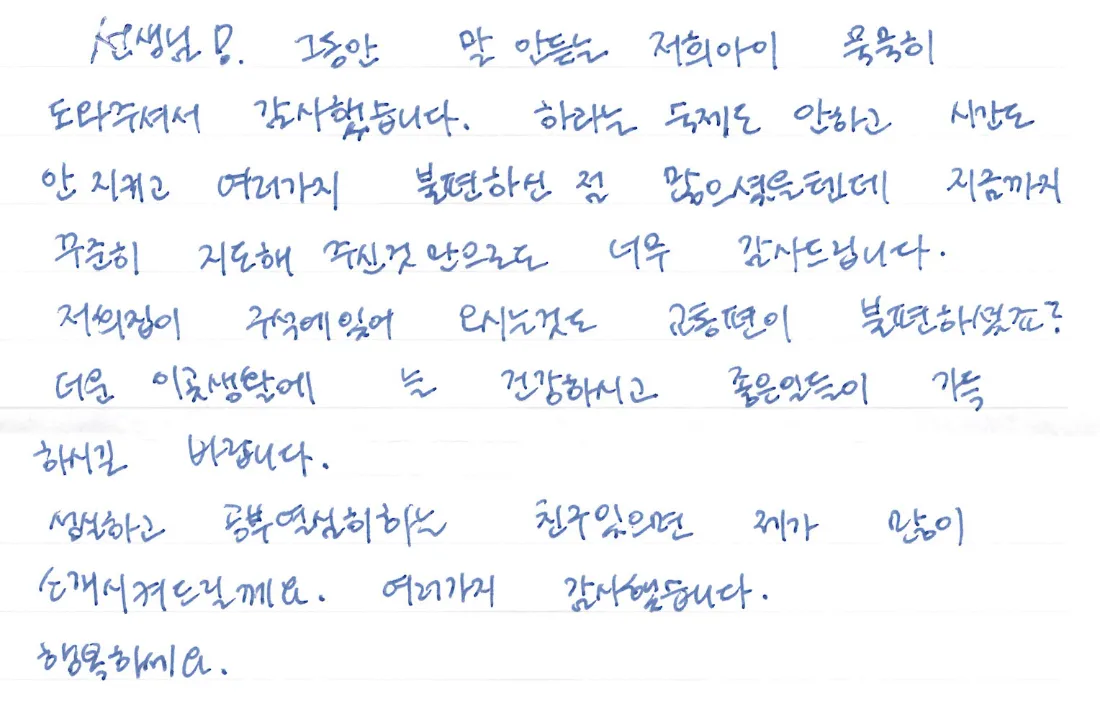 선생님!. 그동안 말 안듣는 저희아이 묵묵히
도와주셔서 감사했습니다. 하라는 숙제도 안하고 시간도
안 지키고 여러가지 불편하신 점 많으셨을텐데 지금까지
꾸준히 지도해 주신것 만으로도 너무 감사드립니다.
저희집이 구석에있어 오시는것도 교통편이 불편하셨죠?
더운 이곳생활에 늘 건강하시고 좋은일들이 가득
하시길 바랍니다.
성실하고 공부열심히하는 친구있으면 제가 많이
소개시켜드릴께요. 여러가지 감사했습니다.
행복하세요.